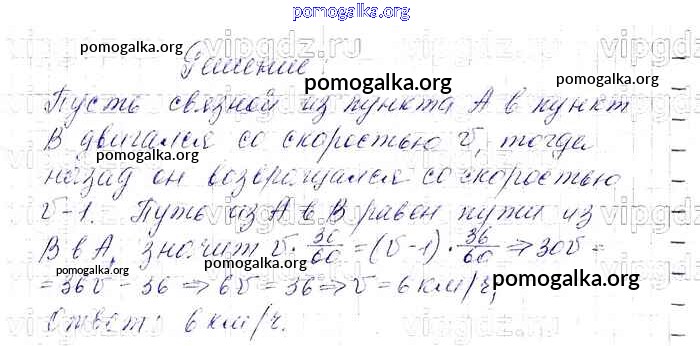 pomogalka.org
vipgdz.ru
vipgdz.ru
pomogalka.org
Решение
pomogalka.org
Пусть связной из пункта А в пункт
pomogalka.org
pomogalka.org
В двигался со скоростью v, тогда
назад он возвращался со скоростью
v-1. Путь из А в В равен пути из
pomogalka.org
pomogalka.org
В в А, значит v · 30/60 = (v-1) · 36/60 ⇒ 30v =
pomogalka.org
pomogalka.org
= 36v - 36 ⇒ 6v = 36 ⇒ v = 6 км/ч,
Ответ: 6 км/ч.
vipgdz.ru
vipgdz.ru